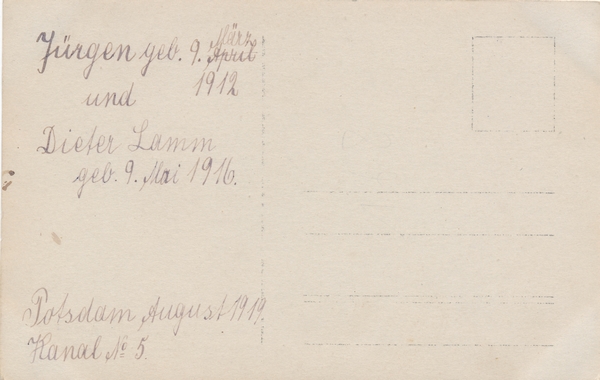 Jürgen geb. 9. März
April
1912
und
Dieter Lamm
geb. 9. Mai 1916.
Potsdam August 1919.
Kanal № 5.